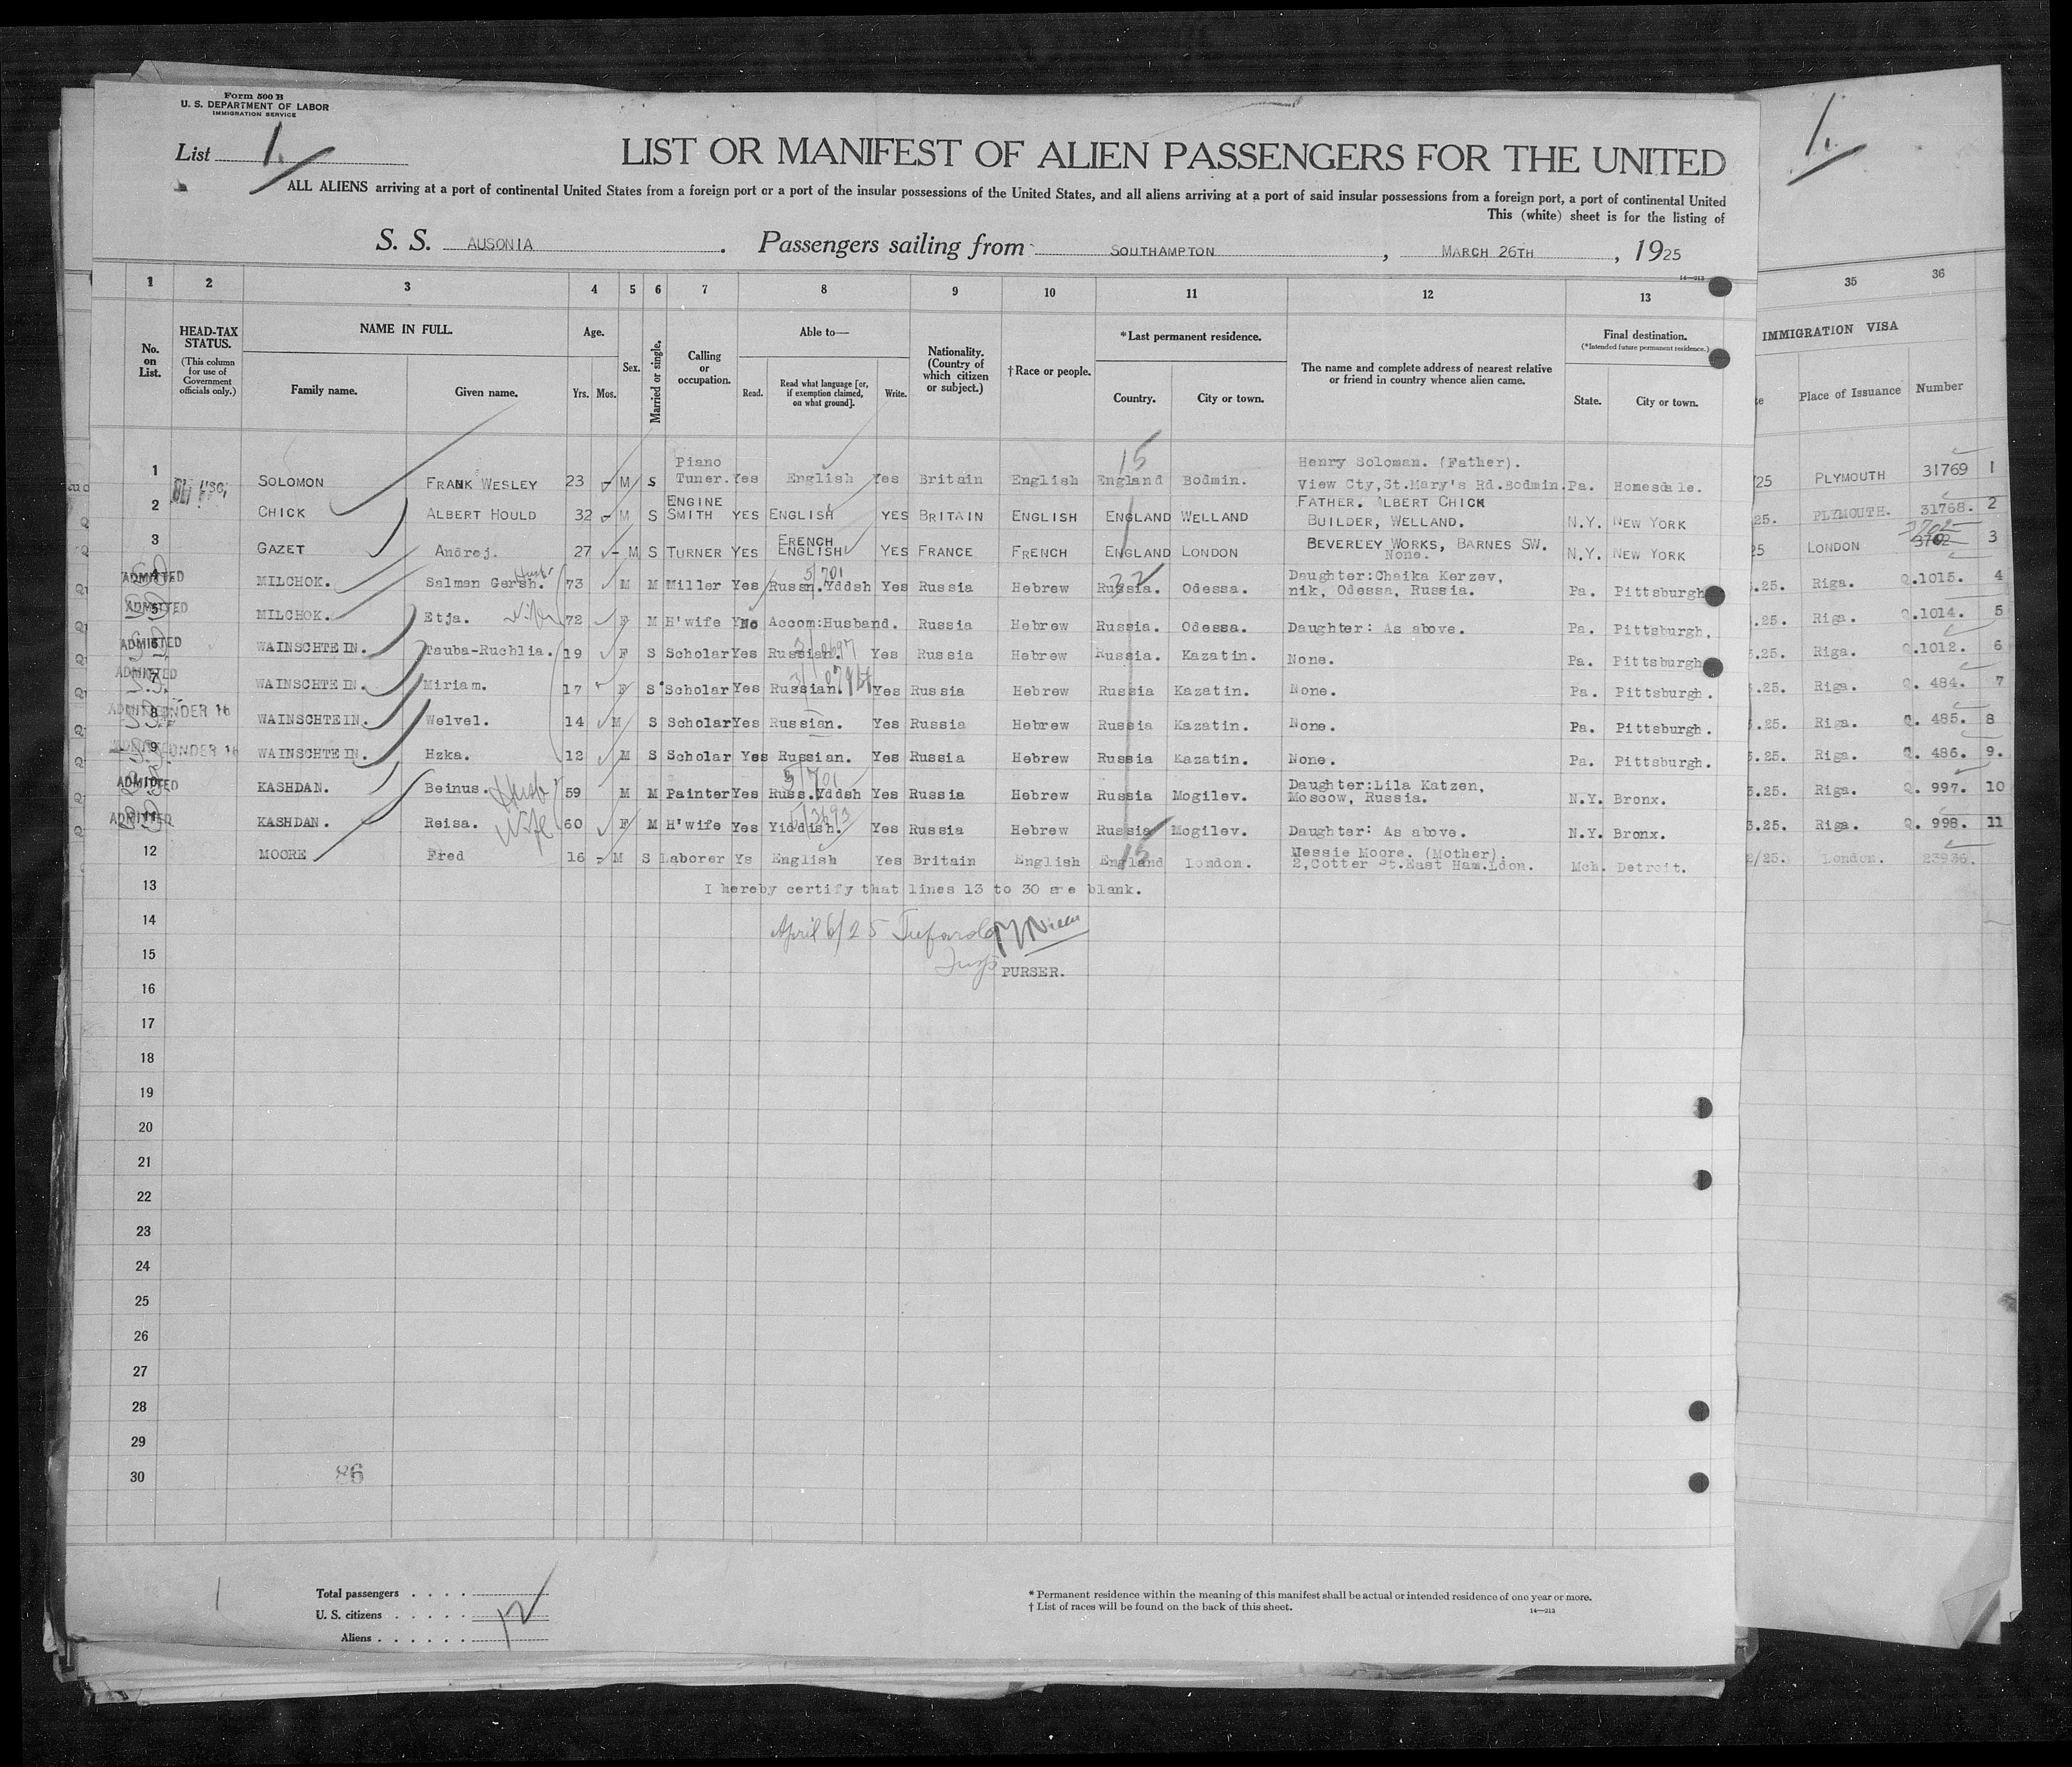 Form 500 B
U. S. DEPARTMENT OF LABOR
IMMIGRATION SERVICE
List 1.
LIST OR MANIFEST OF ALIEN PASSENGERS FOR THE UNITED
ALL ALIENS arriving at a port of continental United States from a foreign port or a port of the insular possessions of the United States, and all aliens arriving at a port of said insular possessions from a foreign port, a port of continental United
This (white) sheet is for the listing of
S. S. AUSONIA. Passengers sailing from SOUTHAMPTON, MARCH 26TH, 1925
14—213
1 2 3 4 5 6 7 8 9 10 11 12 13 35 36
No. on List.
HEAD-TAX STATUS.
(This column for use of Government officials only.)
NAME IN FULL.
Family name. Given name.
Age.
Yrs. Mos.
Sex.
Married or single.
Calling or occupation.
Able to—
Read. Read what language [or, if exemption claimed, on what ground]. Write.
Nationality. (Country of which citizen or subject.)
†Race or people.
*Last permanent residence.
Country. City or town.
The name and complete address of nearest relative or friend in country whence alien came.
Final destination.
(*Intended future permanent residence.)
State. City or town.
IMMIGRATION VISA
Place of Issuance Number
1 SOLOMON FRANK WESLEY 23 - M S Piano Tuner. Yes English Yes Britain English England Bodmin. Henry Soloman. (Father). View Cty,St.Mary's Rd.Bodmin. Pa. Homesdale. /25 PLYMOUTH 31769 1
2 CHICK ALBERT HOULD 32 - M S ENGINE SMITH YES ENGLISH YES BRITAIN ENGLISH ENGLAND WELLAND FATHER. ALBERT CHICK BUILDER, WELLAND. N.Y. NEW YORK 25. PLYMOUTH. 31768. 2
3 GAZET Andrej. 27 - M S TURNER YES FRENCH ENGLISH YES FRANCE FRENCH ENGLAND LONDON BEVERLEY WORKS, BARNES SW. None. N.Y. NEW YORK 25 LONDON 3702 3
4 ADMITTED MILCHOK. Salman Gersh. Husb. 73 M M Miller Yes Russn.Yddsh Yes Russia Hebrew Russia. Odessa. Daughter:Chaika Kerzev, nik, Odessa, Russia. Pa. Pittsburgh .25. Riga. Q.1015. 4
5 ADMITTED MILCHOK. Etja. Wife 72 F M H'wife No Accom:Husband. Russia Hebrew Russia. Odessa. Daughter: As above. Pa. Pittsburgh. .25. Riga. Q.1014. 5
6 ADMITTED WAINSCHTEIN. Tsuba-Ruchlia. 19 F S Scholar Yes Russian. Yes Russia Hebrew Russia. Kazatin. None. Pa. Pittsburgh .25. Riga. Q.1012. 6
7 ADMITTED WAINSCHTEIN. Miriam. 17 F S Scholar Yes Russian. Yes Russia Hebrew Russia Kazatin. None. Pa. Pittsburgh. .25. Riga. Q. 484. 7
8 ADMITTED UNDER 16 WAINSCHTEIN. Welvel. 14 M S Scholar Yes Russian. Yes Russia Hebrew Russia Kazatin. None. Pa. Pittsburgh. .25. Riga. Q. 485. 8
9 UNDER 16 WAINSCHTEIN. Hzka. 12 M S Scholar Yes Russian. Yes Russia Hebrew Russia Kazatin. None. Pa. Pittsburgh. .25. Riga. Q. 486. 9.
10 ADMITTED KASHDAN. Beinus. Husb 59 M M Painter Yes Russ.Yddsh Yes Russia Hebrew Russia Mogilev. Daughter:Lila Katzen, Moscow, Russia. N.Y. Bronx. 3.25. Riga. Q. 997. 10
11 ADMITTED KASHDAN. Reisa. Wife 60 F M H'wife Yes Yiddish. Yes Russia Hebrew Russia Mogilev. Daughter: As above. N.Y. Bronx. 3.25. Riga. Q. 998. 11
12 MOORE Fred 16 - M S Laborer Ys English Yes Britain English England London. Nessie Moore. (Mother). 2,Cotter St.East Ham.Ldon. Mch. Detroit. 2/25. London. 23936.
13 I hereby certify that lines 13 to 30 are blank.
14 April 6/25
15 PURSER.
16
17
18
19
20
21
22
23
24
25
26
27
28
29
30
86
Total passengers
U. S. citizens
Aliens
12
* Permanent residence within the meaning of this manifest shall be actual or intended residence of one year or more.
† List of races will be found on the back of this sheet.
14—213